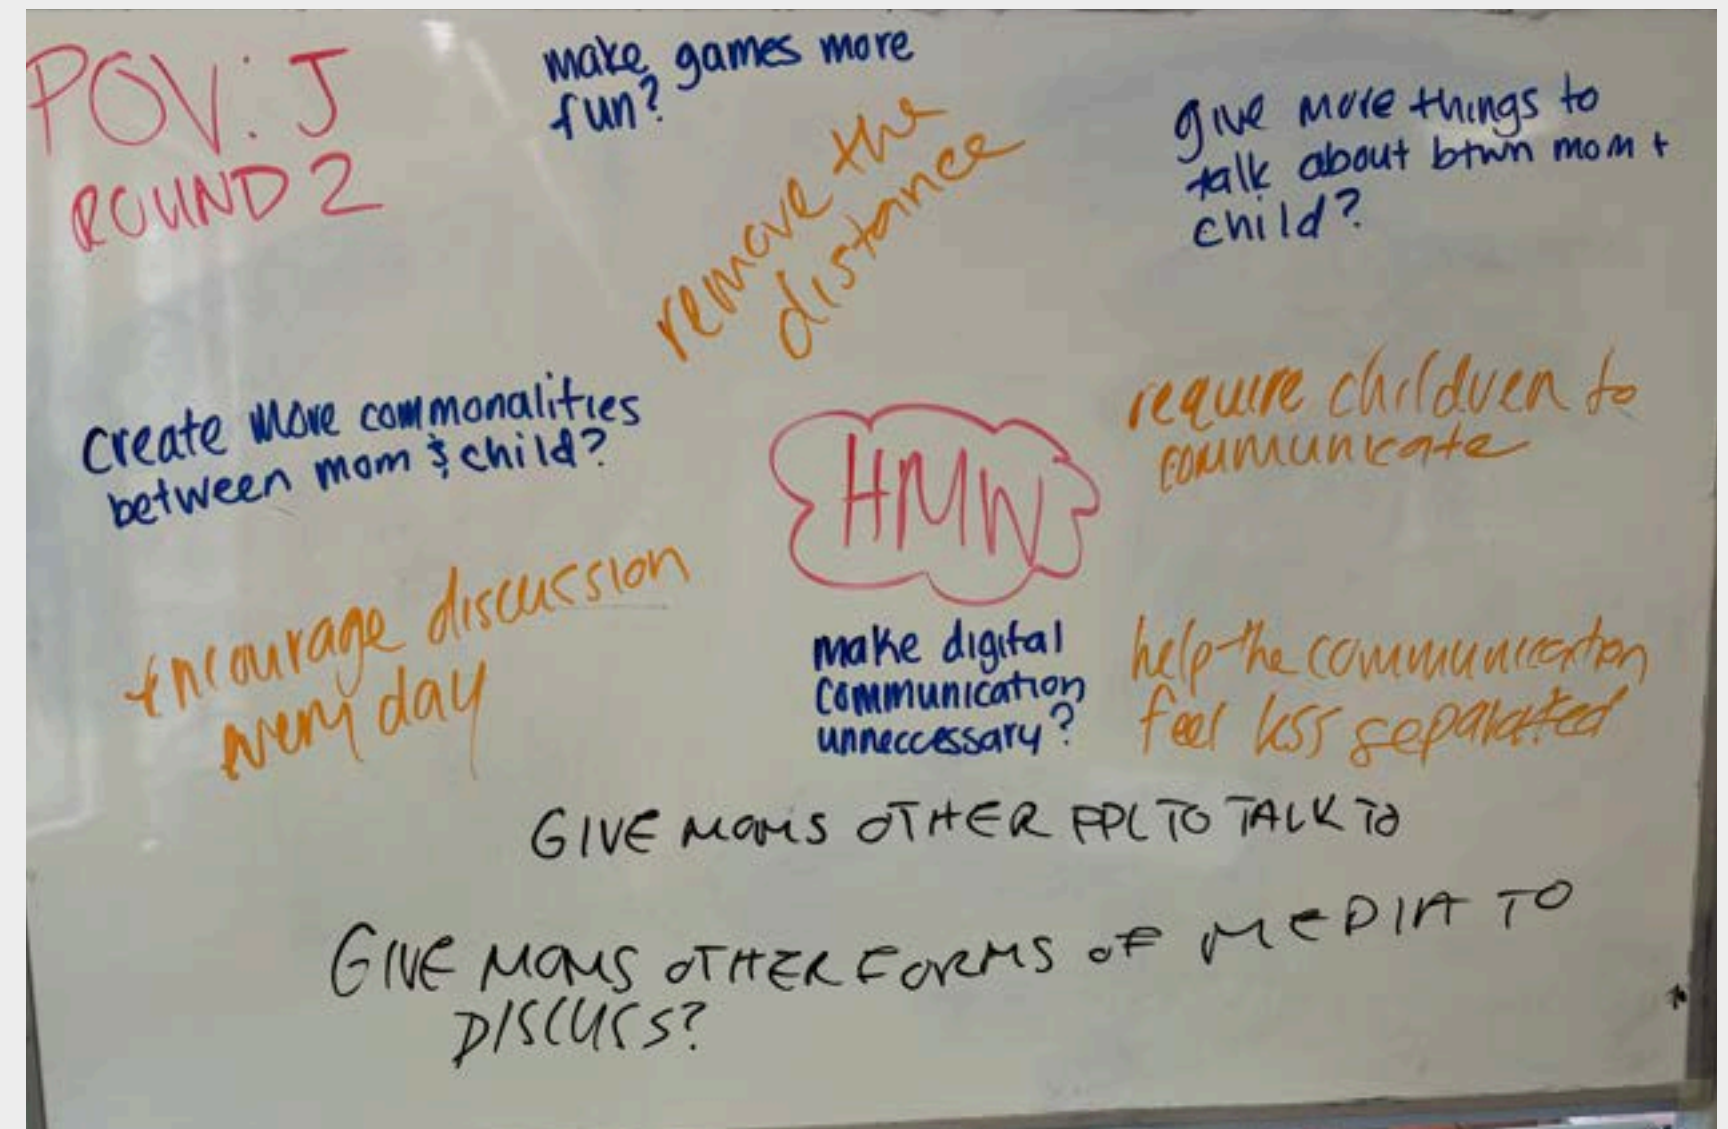 POV: J
ROUND 2
make games more
fun?
remove the
distance
give more things to
talk about btwn mom +
child?
create more commonalities
between mom & child?
HMW
require children to
communicate
encourage discussion
every day
make digital
communication
unneccessary?
help the communication
feel less separated
GIVE MOMS OTHER PPL TO TALK TO
GIVE MOMS OTHER FORMS OF MEDIA TO
DISCUSS?